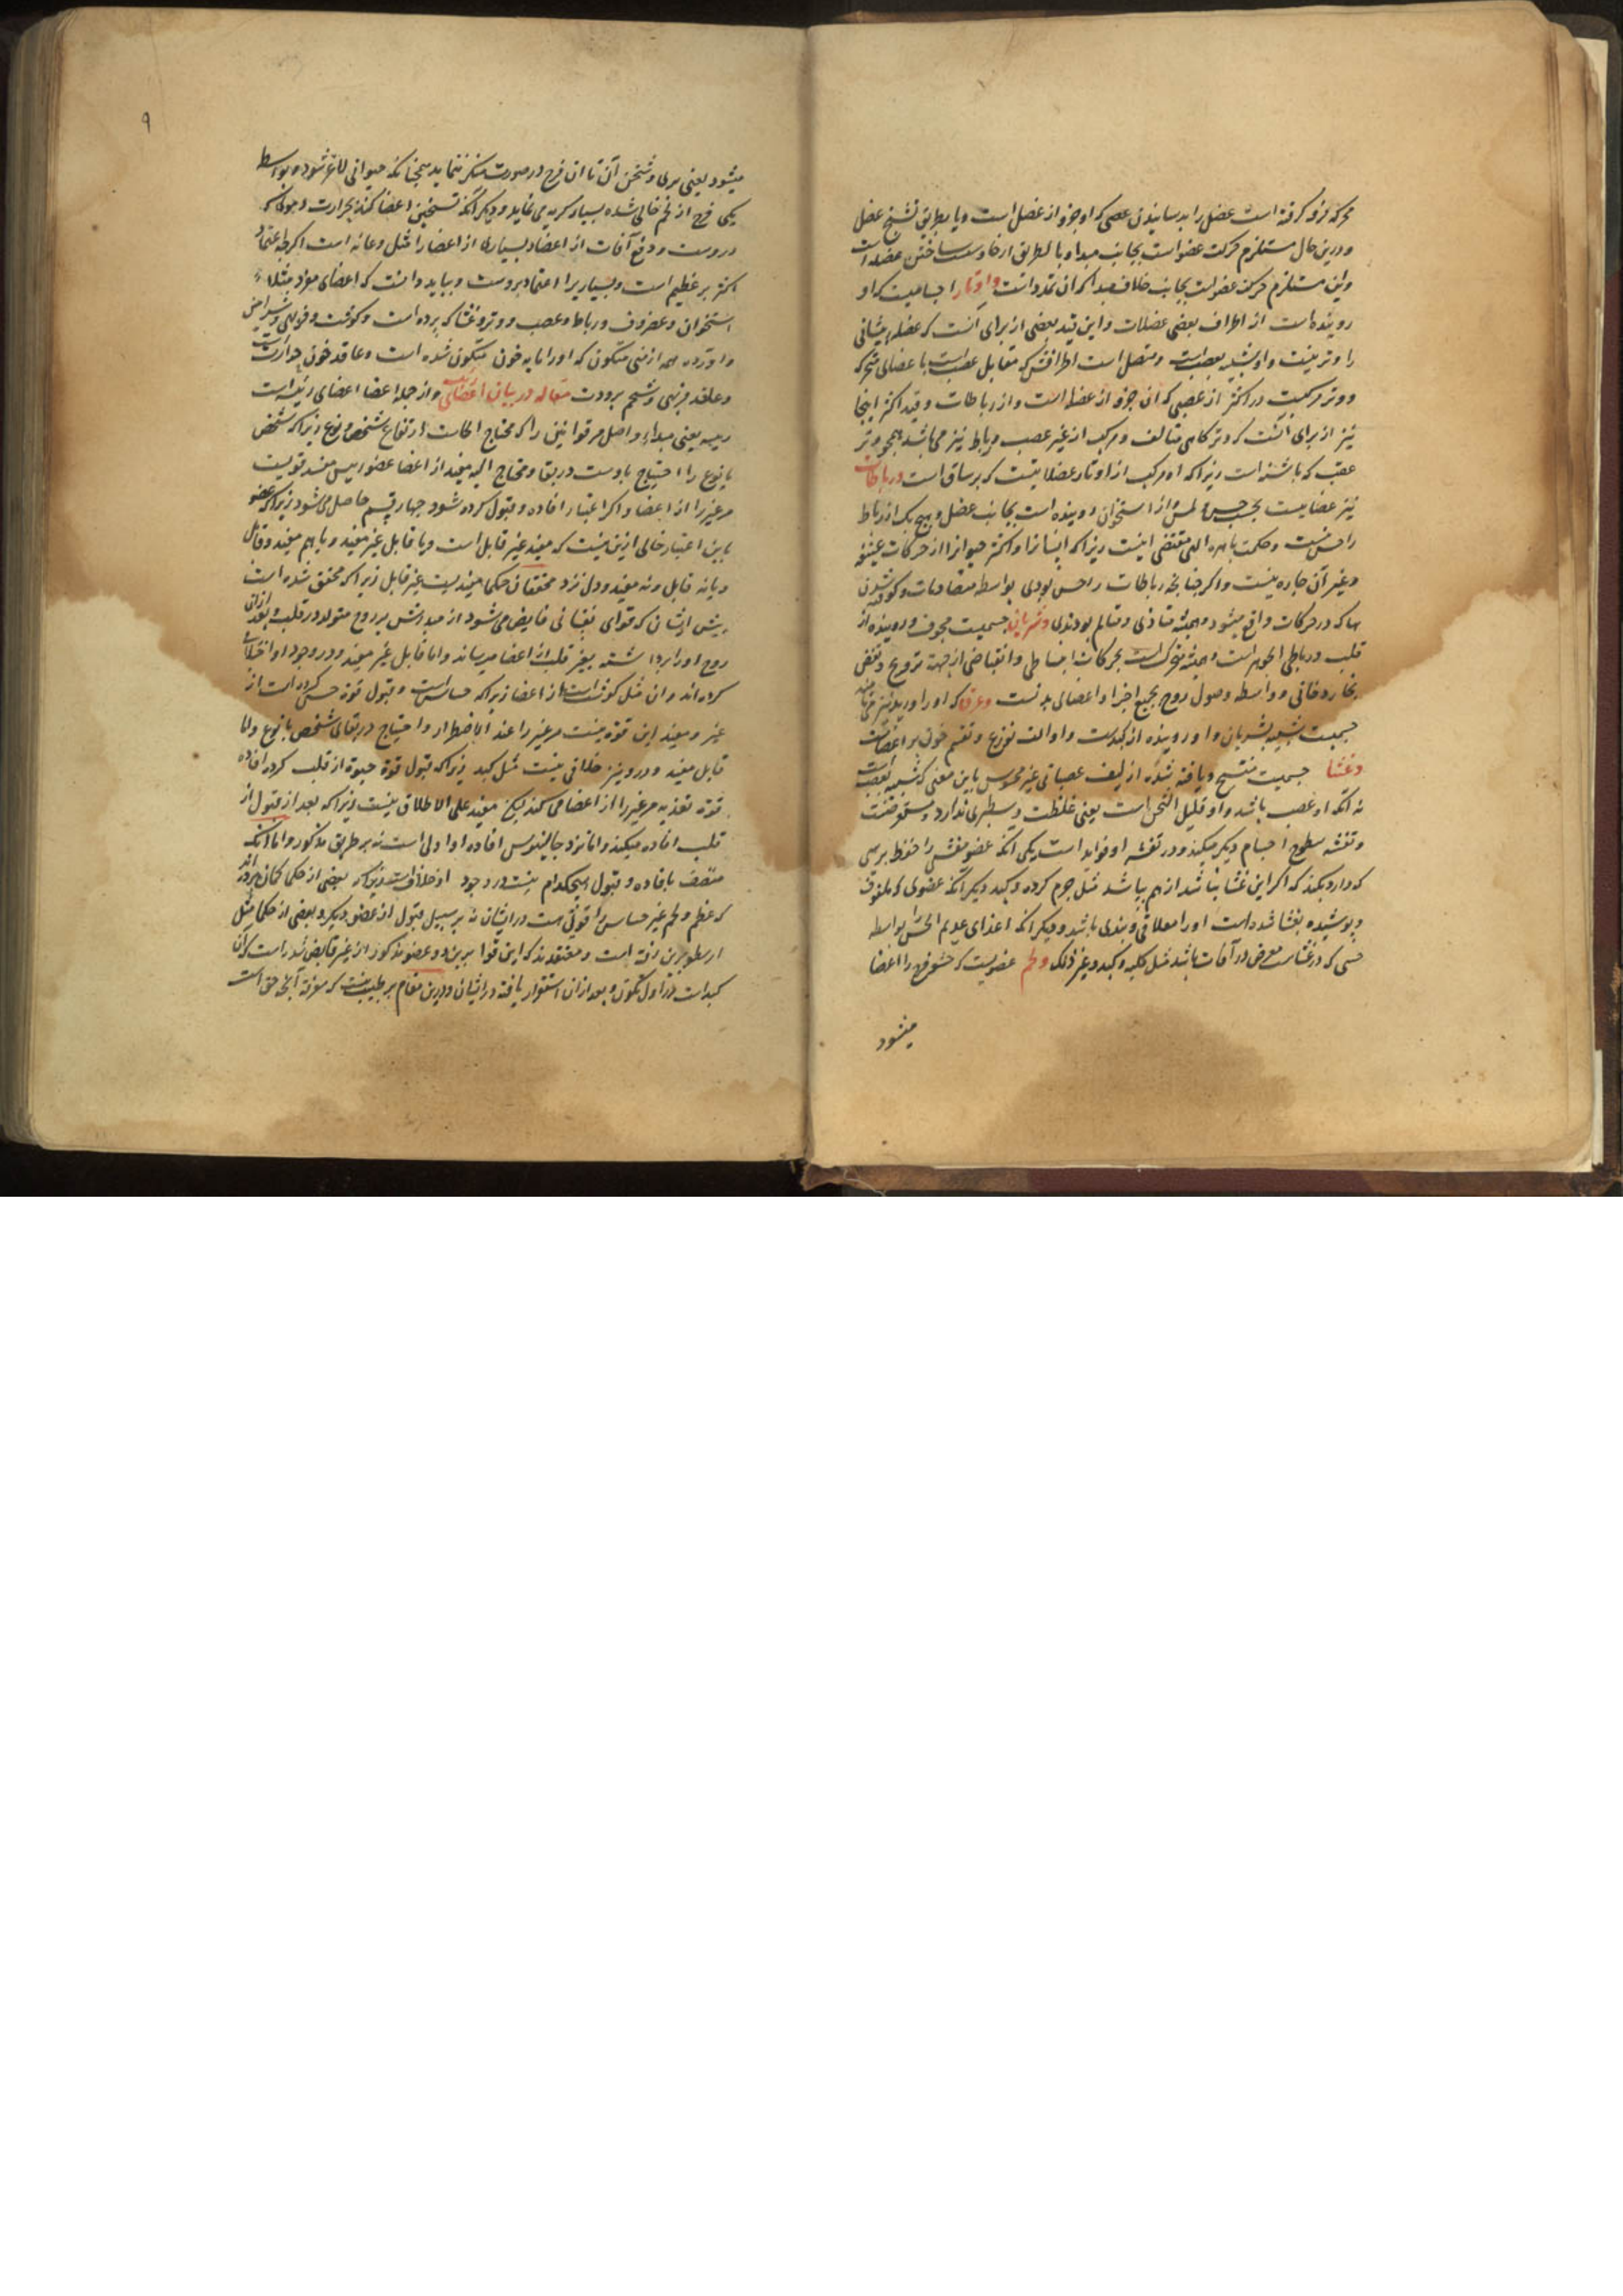 محرکه فرو کرفته است عضل را بدسانیدن عصبی که او جزو از عضل است و یا بطریق تشنج عضل
و درین حال مستلزم حرکت عضو است بجانب مبدا و یا بطریق ارخا و سست ساختن عضلات
و این مستلزم حرکت عضو است بجانب خلاف مبدا که ان تمدد است و اوتار اجسامیت که او
روینده است از اطراف بعضی عضلات و این قید بعضی از برای آنست که عضله پیشانی
را وتر نیست و او شبیه بعصب است و متصل است اطرافش که مقابل عصب است با عضای متحرکه
و وتر مرکبیت در اکثر از عصبی که ان جزو از عضله است و از رباطات و قید اکثر اینجا
نیز از برای انست که وتر کاهی متالف و مرکب از غیر عصب و رباط نیز می باشد همچو وتر
عقب که پاشنه است زیرا که او مرکب از اوتار عضلاتیست که بر ساق است و رباطات
نیز عضایست بحسب حس و لمس از استخوان روینده است بجانب عضل و هیچ یک از رباط
را حس نیست و حکمت باهره الهی مقتضی اینست زیرا که انسانرا و اکثر حیوانرا از حرکات عنیفه
و غیر آن چاره نیست و اکر چنانچه رباطات را حس بودی بواسطه مصادمات و کوفته شدن
ها که در حرکات واقع میشود و همیشه متاذی و متالم بودندی و شریانها جسمیت مجوف و روینده از
قلب و رباطی الجوهر است و همیشه متحرک است بحرکات انبساطی و انقباضی از جهة ترویح و نفض
بخار دخانی و واسطه وصول روح بجمیع اجزا و اعضای بدنست و عرق که او را ورید نیز می نامند
جسمیت شبیه بشریان و او روینده از کبدست و او الت توزیع و تقسیم خون بر اعضاست
و غشا جسمیت منتسج و یافته شده از لیف عصبانی غیر محسوس باین معنی که شبیه بعصب است
نه انکه او عصب باشد و او قلیل الثخن است یعنی غلظت و سطبری ندارد و مستعرضست
و تغشیه سطوح اجسام دیکر میکند و در تغشیه او فواید است یکی آنکه عضو مغشی را حفظ بر هیئتی
که دارد بکند که اکر این غشا نباشد از هم بپاشد مثل جرم کرده و کبد دیکر آنکه عضوی که ملفوف
و پوشیده بغشا شده است او را معلاقی و بندی باشد و دیکر انکه اعضای عدیم الحس را بواسطه
حسی که در غشاست معرض در آفات باشد مثل کلیه و کبد و غیر ذلک و لحم عضویست که حشو فرج را اعضا
میشود
۹
میشود یعنی پری و ثخن آن تا ان فرج در صورت منکر ننماید همچنانکه حیوانی لاغر شود و بواسطه
یکی فرج از لحم خالی شده بسیار کریه می نماید و دیکر آنکه تسخین اعضا کند بحرارت دموی که
دروست و دفع آفات از اعضا و بسیاری از اعضا را مثل وعائه است اکرچه اعتماد
اکثر بر عظیم است و بسیاریرا اعتماد بروست و بباید دانست که اعضای مفرد مثلا
استخوان و غضروف و رباط و عصب و وتر و غشا که پرده است و کوشت و فربهی و شرایین
و اورده همه از منی متکون که او را پایه خون متکون شده است و عاقد خون حرارت است
و عاقد فربهی و شحم برودت مقاله در بیان اعضای و از جمله اعضا اعضای رئیسه است
رئیسه یعنی مبداء و اصل مر قوائین را که محتاج الیهاست ارتفاع شخص و نوع زیرا که شخص
یا نوع را احتیاج باوست در بقا و محتاج الیه مفید از اعضا عضو رئیس مفید قویست
مر غیر را از اعضا و اکر اعتبار افاده و قبول کرده شود چهار قسم حاصل می شود زیرا که عضو
باین اعتبار خالی ازین نیست که مفید غیر قابل است و یا قابل غیر مفید و یا هم مفید و قابل
و یا نه قابل و نه مفید و دل نزد محققان حکما مفید یست غیر قابل زیرا که محقق شده است
پیش ایشان که قوای نفسانی فایض می شود از مبدئش بر روح متولد در قلب و بعد ازان
روح او را برداشته بغیر قلب از اعضا میرساند و اما قابل غیر مفید و در وجود او اختلاف
کرده اند و ان مثل کوشت است از اعضا زیرا که حساس است و قبول قوة حس کرده است از
غیر و مفید این قوة نیست مر غیر را عند الاضطرار و احتیاج در بقای شخص یا نوع و اما
قابل مفید و درو نیز خلافی نیست مثل کبد زیرا که قبول قوة حیوة از قلب کرده افاده
قوة تغذیه مر غیر را از اعضا می کند لیکن مفید علی الاطلاق نیست زیرا که بعد از قبول از
قلب افاده میکند و اما نزد جالینوس افاده او اولی است نه بر طریق مذکور و اما آنکه
متصف بافاده و قبول هیچکدام نیست در وجود او خلافست زیرا که بعضی از حکما کمان برده اند
که عظم و لحم غیر حساس را قوتی هست در ایشان نه بر سبیل قبول از عضو دیکر و بعضی از حکما مثل
ارسطو برین رفته است و معتقدند که این قوا برین دو عضو مذکور از غیر فایض شده است که آن
کبد است در اول تکون و بعد ازان استقرار یافته در ایشان و درین مقام بر طبیب نیست که معرفة آنچه حق است